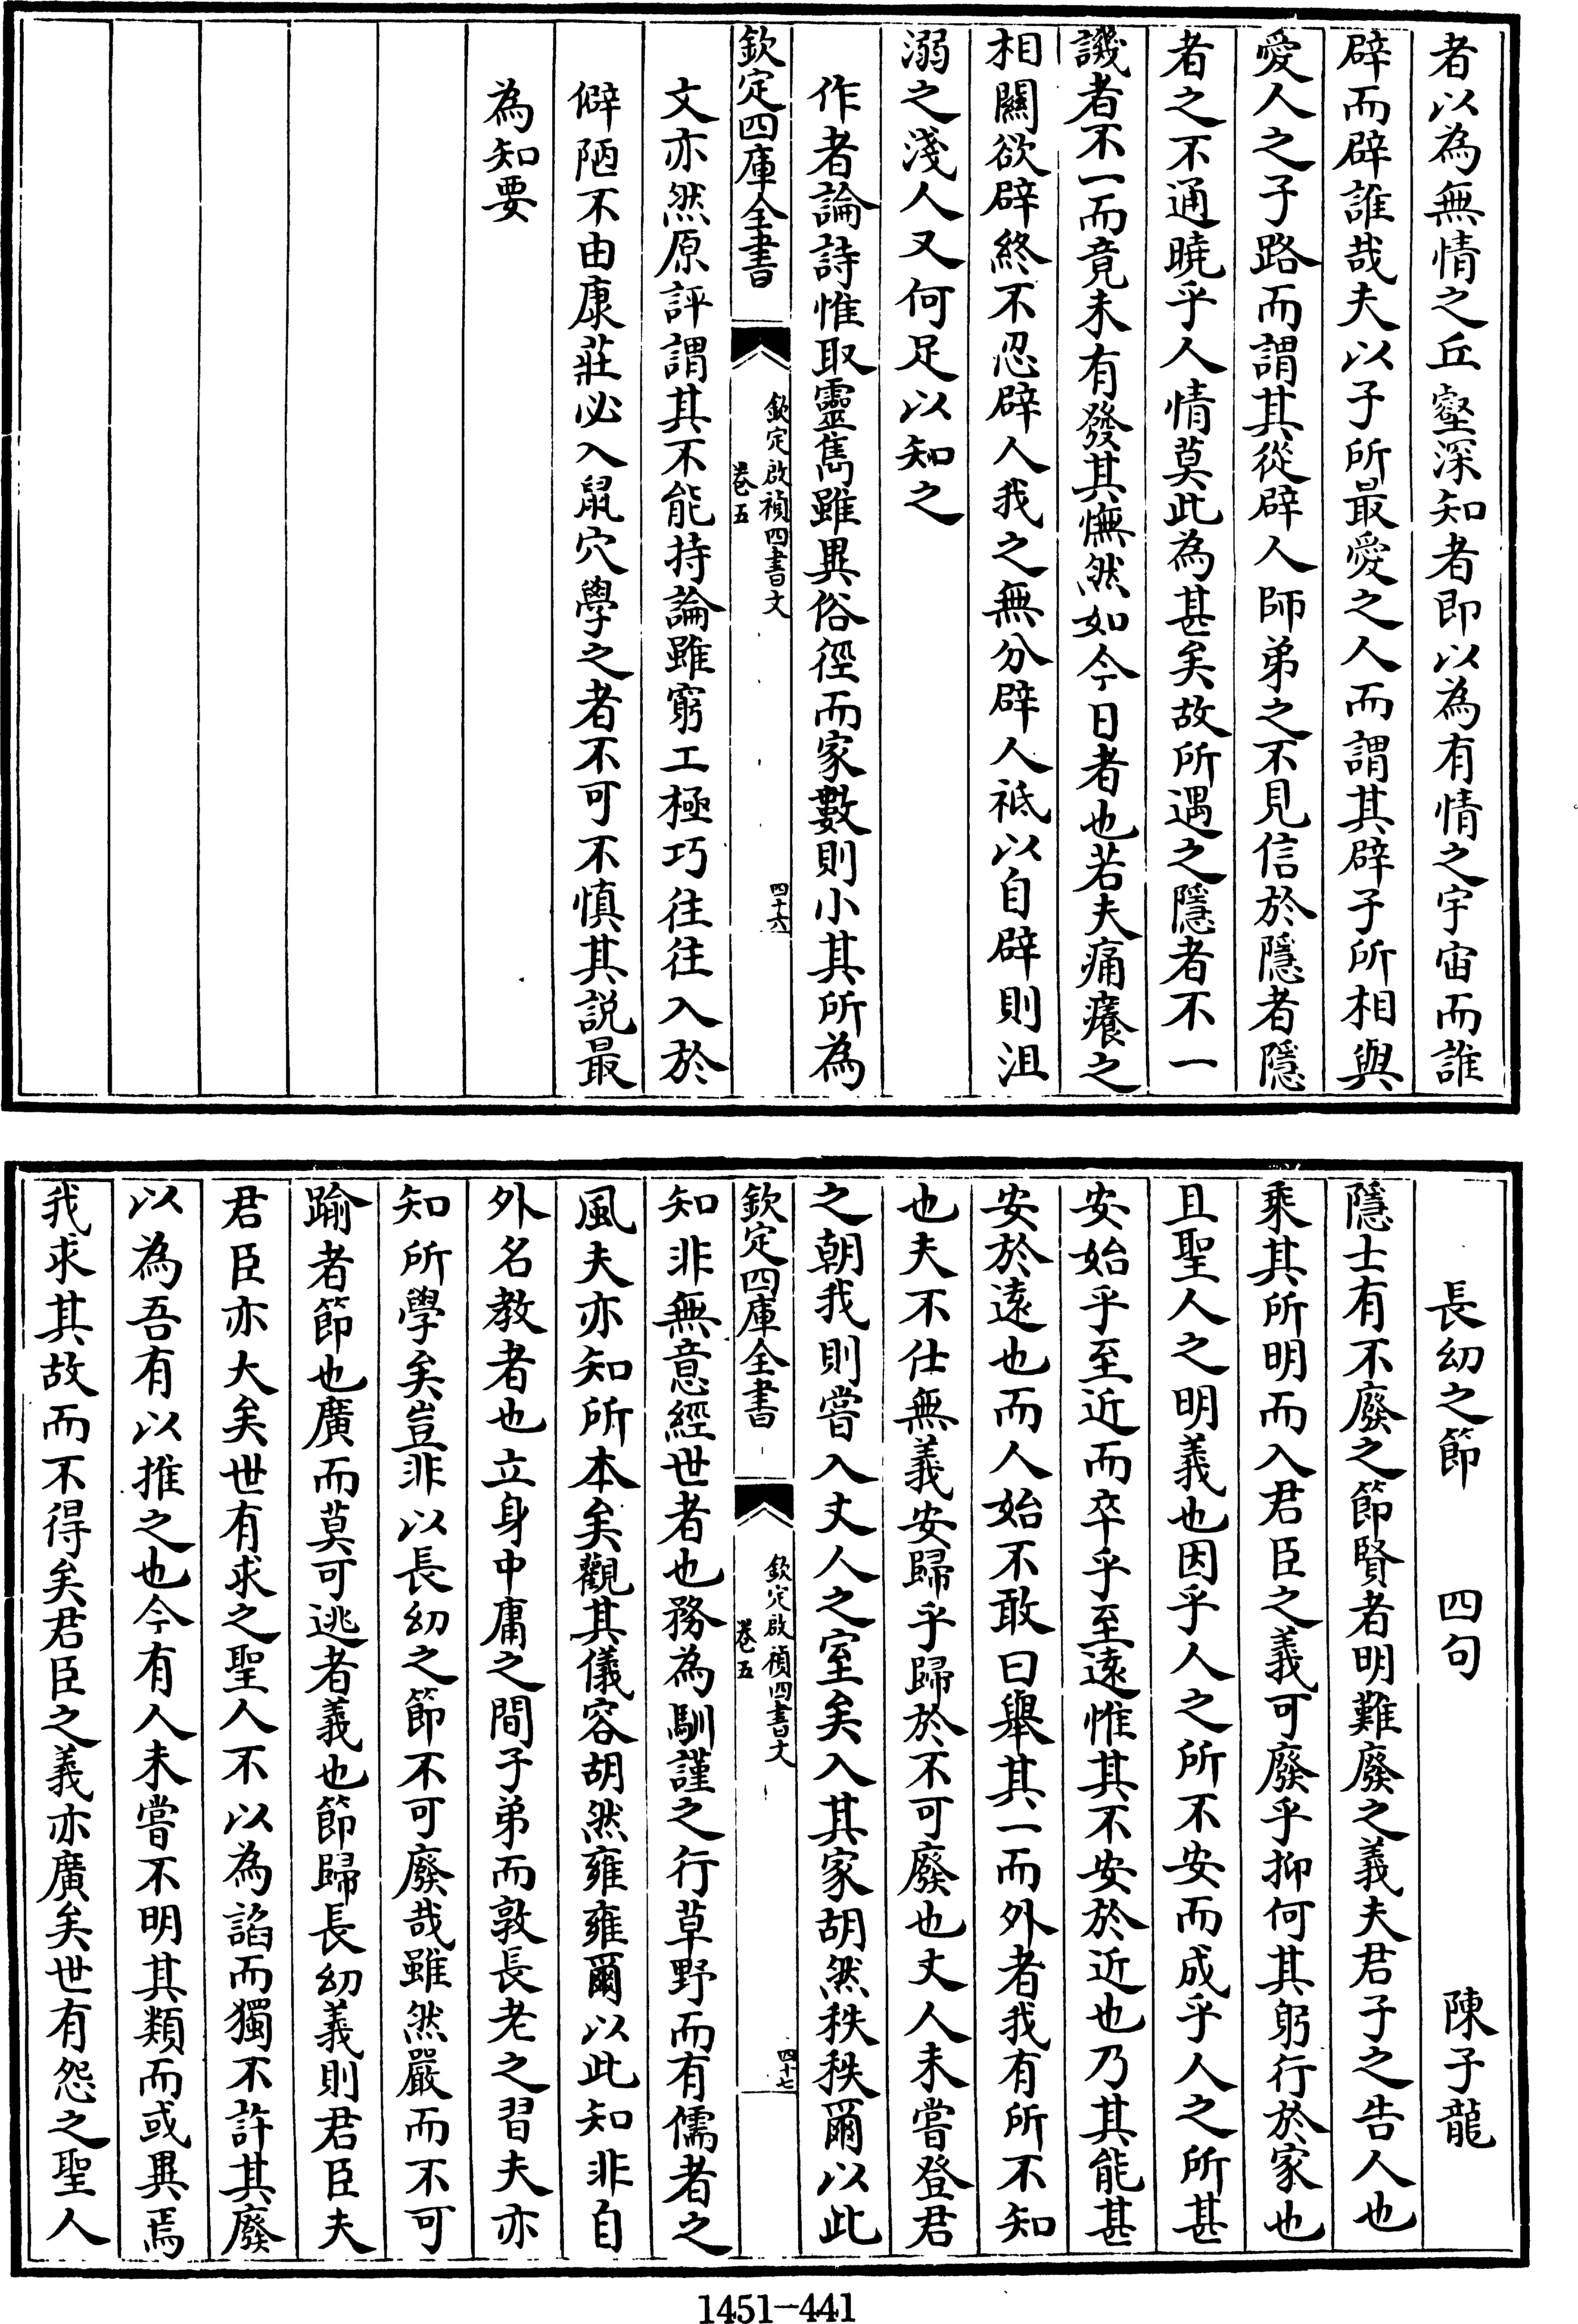 者以為無情之丘壑深知者即以為有情之宇宙而誰
辟而辟誰哉夫以子所最愛之人而謂其辟子所相與
愛人之子路而謂其從辟人師弟之不見信於隱者隱
者之不通曉乎人情莫此為甚矣故所遇之隱者不一
譏者不一而竟未有發其憮然如今日者也若夫痛癢之
相關欲辟終不忍辟人我之無分辟人祗以自辟則沮
溺之淺人又何足以知之
作者論詩惟取靈雋雖異俗徑而家數則小其所為
欽定四庫全書
欽定啟禎四書文
卷五
四十六
文亦然原評謂其不能持論雖窮工極巧往往入於
僻陋不由康莊必入鼠穴學之者不可不慎其説最
為知要
長幼之節 四句 陳子龍
隱士有不廢之節賢者明難廢之義夫君子之告人也
乘其所明而入君臣之義可廢乎抑何其躬行於家也
且聖人之明義也因乎人之所不安而成乎人之所甚
安始乎至近而卒乎至遠惟其不安於近也乃其能甚
安於遠也而人始不敢曰舉其一而外者我有所不知
也夫不仕無義安歸乎歸於不可廢也丈人未嘗登君
之朝我則嘗入丈人之室矣入其家胡然秩秩爾以此
欽定四庫全書
欽定啟禎四書文
卷五
四十七
知非無意經世者也務為馴謹之行草野而有儒者之
風夫亦知所本矣觀其儀容胡然雍雍爾以此知非自
外名教者也立身中庸之間子弟而敦長老之習夫亦
知所學矣豈非以長幼之節不可廢哉雖然嚴而不可
踰者節也廣而莫可逃者義也節歸長幼義則君臣夫
君臣亦大矣世有求之聖人不以為諂而獨不許其廢
以為吾有以推之也今有人未嘗不明其類而或異焉
我求其故而不得矣君臣之義亦廣矣世有怨之聖人
1451-441